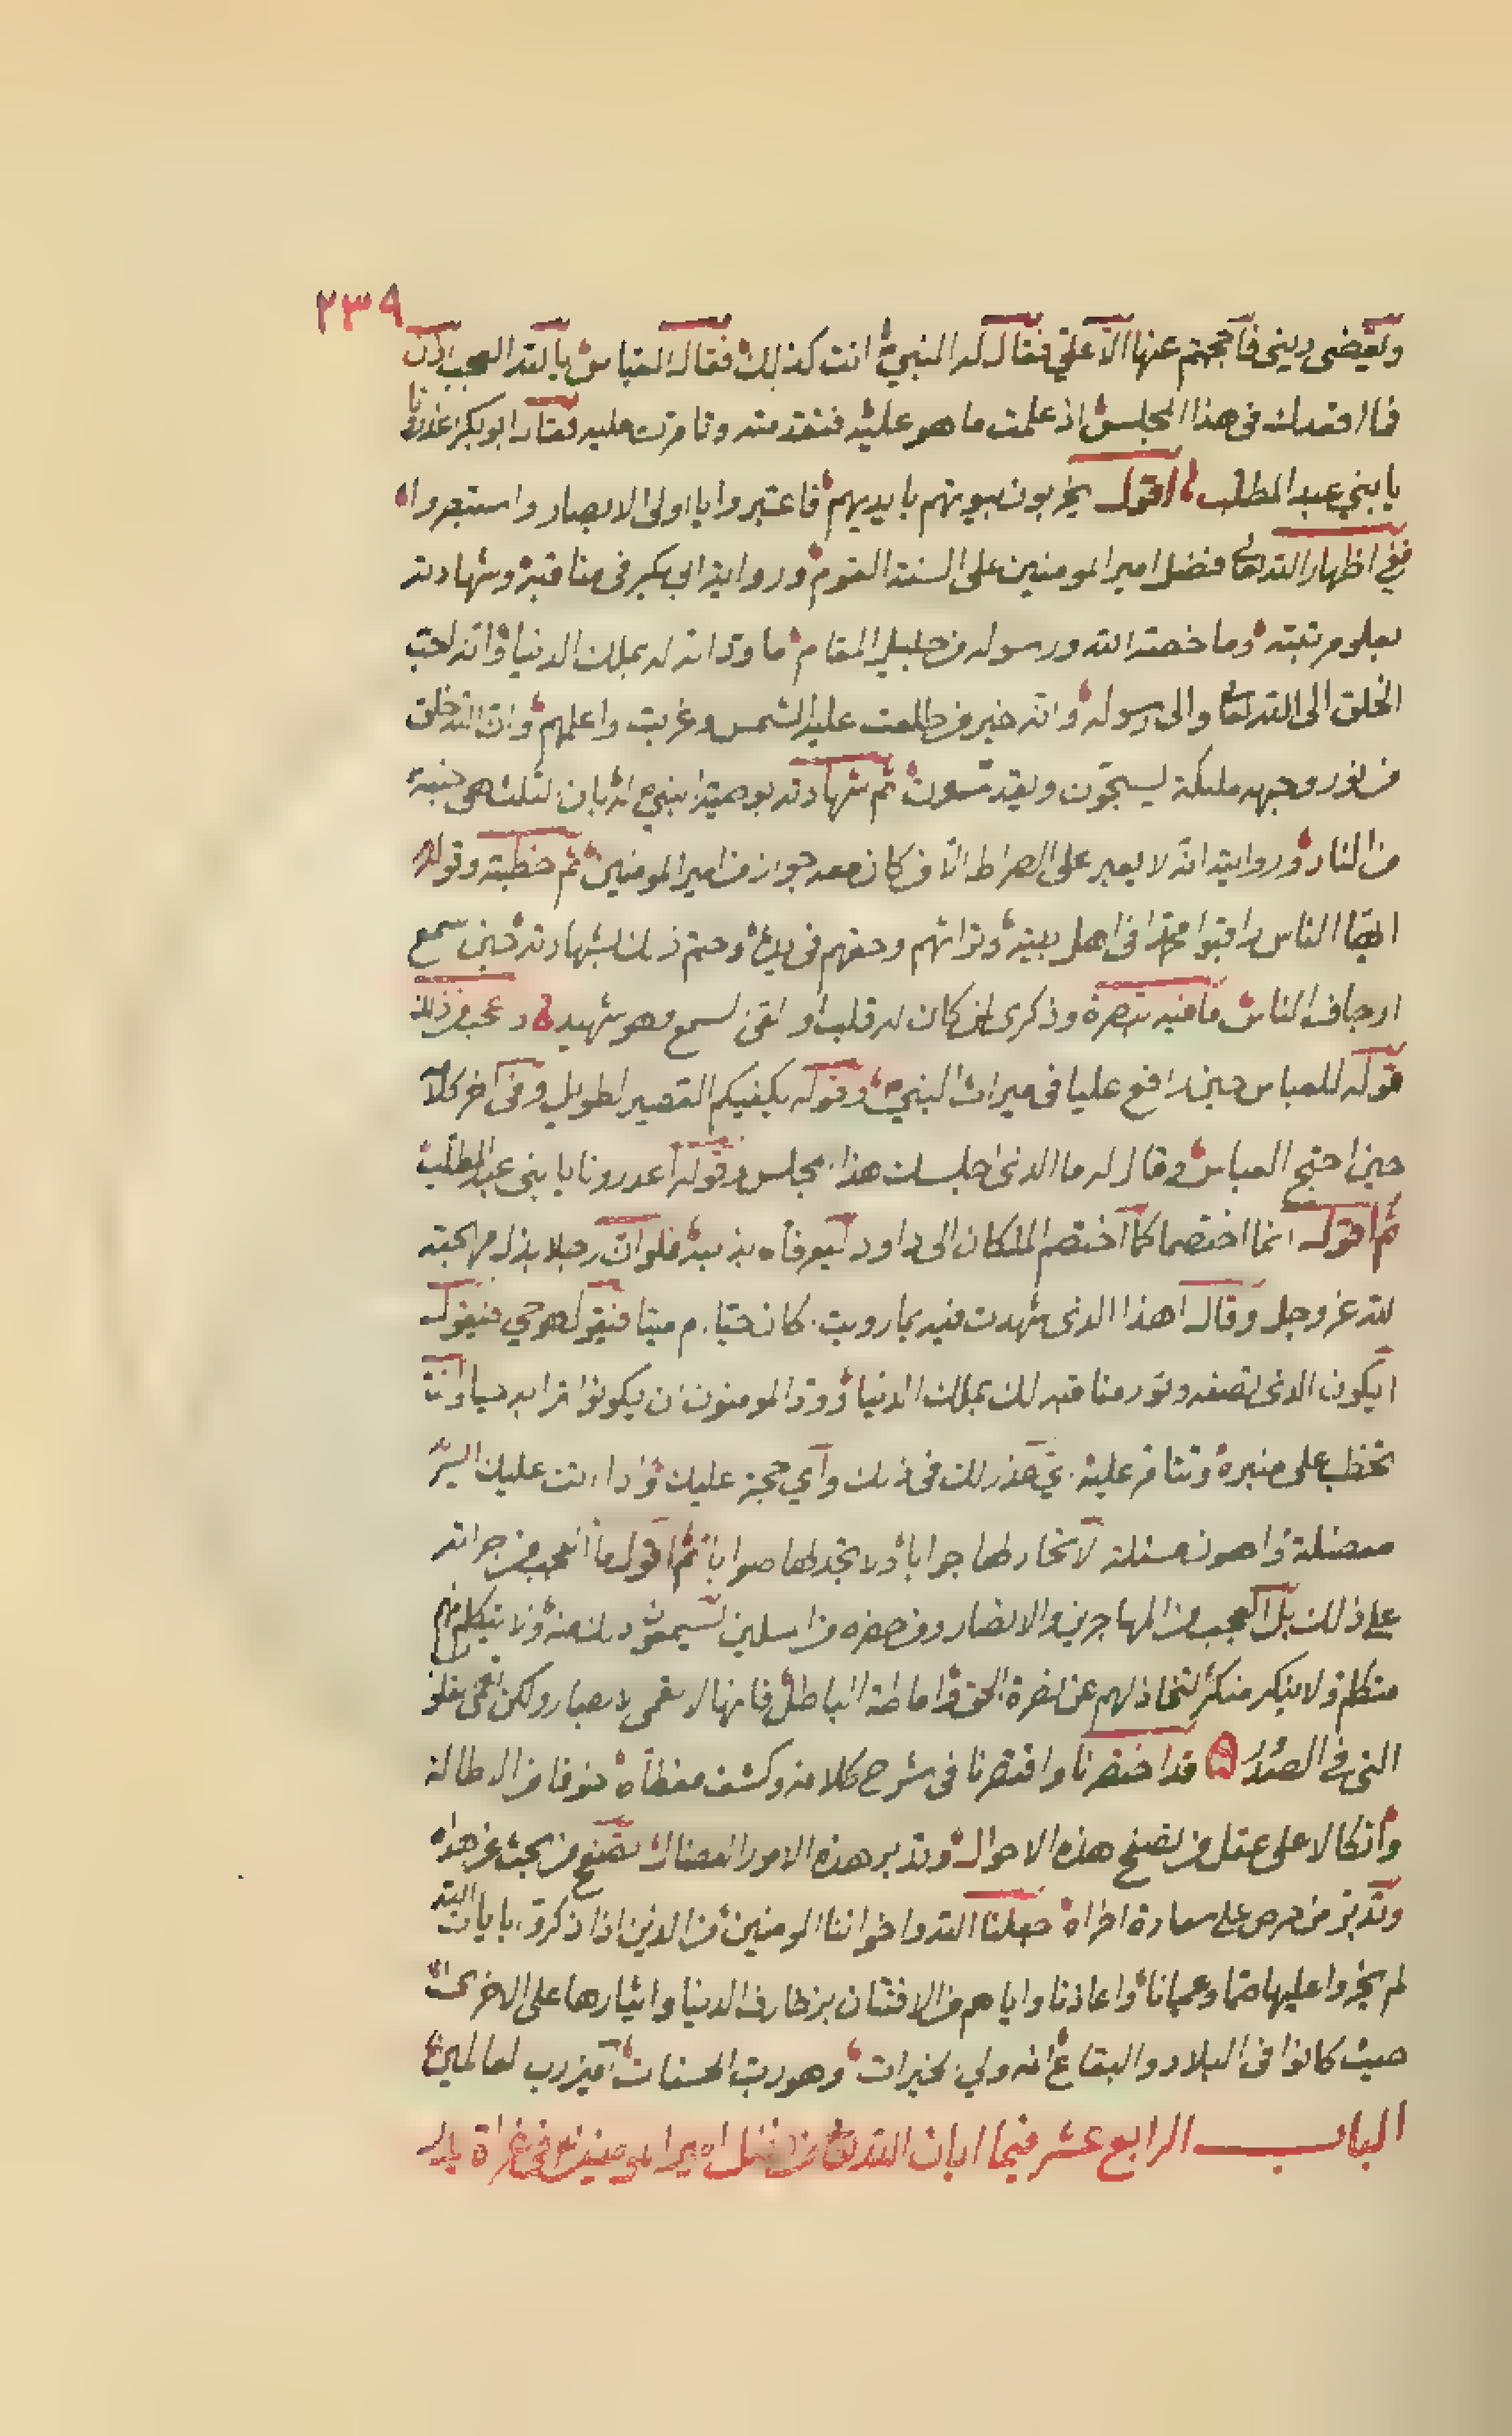 ٢٣٩
ويقضى دينى فاحجمتم عنها الا علي فقال له النبي انت كذلك فقال العباس بالله العجب اذن
فما اقعدك فى هذا المجلس اذ علمت ما هو عليه فتقدمته وتامرت عليه فقال ابو بكر اعذرونا
يا بني عبد المطلب اقول يخربون بيوتهم بايديهم فاعتبروا يا اولى الابصار واستبصروا
ففي اظهار الله تعالى فضل امير المومنين على السنة القوم ورواية ابي بكر فى مناقبه وشهادته
بعلو مرتبته وما خصه الله ورسوله من جليل المقام ما ود انه له بملك الدنيا وانه احب
الخلق الى الله تعالى والى رسوله وانه خير من طلعت عليه الشمس وغربت واعلمهم وان الله خلق
من نور وجهه ملئكة يسبحون ويقدسون ثم شهادته بوصية النبي له بان لثلث هى
من النار ورواية انه لا يعبر على الصراط الا من كان معه جواز من امير المومنين ثم خطبته وقوله
ايها الناس راقبوا محمدا فى اهل بيته وتراثهم وحقهم فى وختم ذلك بشهادته حين سمع
ارجاف الناس ما فيه تبصرة وذكرى لمن كان له قلب او القى السمع وهو شهيد وعجب من ذلك
قوله للعباس حين رافع عليا فى ميراث النبي وقوله يكفيكم القصير الطويل وفى اخر كلامه
حين احتج العباس وقال له ما الذى اجلسك هذا المجلس وقوله اعذرونا يا بنى عبد المطلب
ثم اقول انما اختصما كما اختصم الملكان الى داود ليعرفاه بذنبه فلو ان رجلا بذل مهجته
لله عز وجل وقال اهذا الذى شهدت فيه بما رويت كان حيا ام ميتا فيقول هو حي فيقول
ايكون الذى تصفه وتود مناقبه لك بملك الدنيا وود المومنون ان يكونوا ترابه حيا وانت
تخطب على منبره وتتامر عليه اي عذر لك فى ذلك واي حجة عليك اذا عليك اليس
معضلة واهون مسئلة لا تحار لها جوابا ولا تجد لها صوابا ثم اقول ما اعجب من جراته
على ذلك بل العجب من المهاجرين والانصار ومن حضره من المسلمين يسمعون ذلك منه ولا يتكلم منهم
متكلم ولا ينكر منكر لتخاذلهم عن نصرة الحق واماطة الباطل فانها لا تعمى الابصار ولكن تعمى القلوب
التى فى الصدور قد اختصرنا واقتصرنا فى شرح كلامه وكشف مغطاه خوفا من الاطالة
واتكالا على عقل من تصفح هذه الاحوال وتدبر هذه الامور العضال تصفح من بحث عن هداه
وتدبر من حرص على سعادة اخراه جعلنا الله واخواننا المومنين من الذين اذا ذكروا بايات الله
لم يخروا عليها صما وعميانا واعاذنا واياهم من الافتتان بزخارف الدنيا وايثارها على الاخرى
حيث كانوا فى البلاد والبقاع انه ولي الخيرات وهو رب الحسنات امين رب العالمين
الباب الرابع عشر فيما ابان الله تعالى من فضل امير المومنين فى غزاة بدر